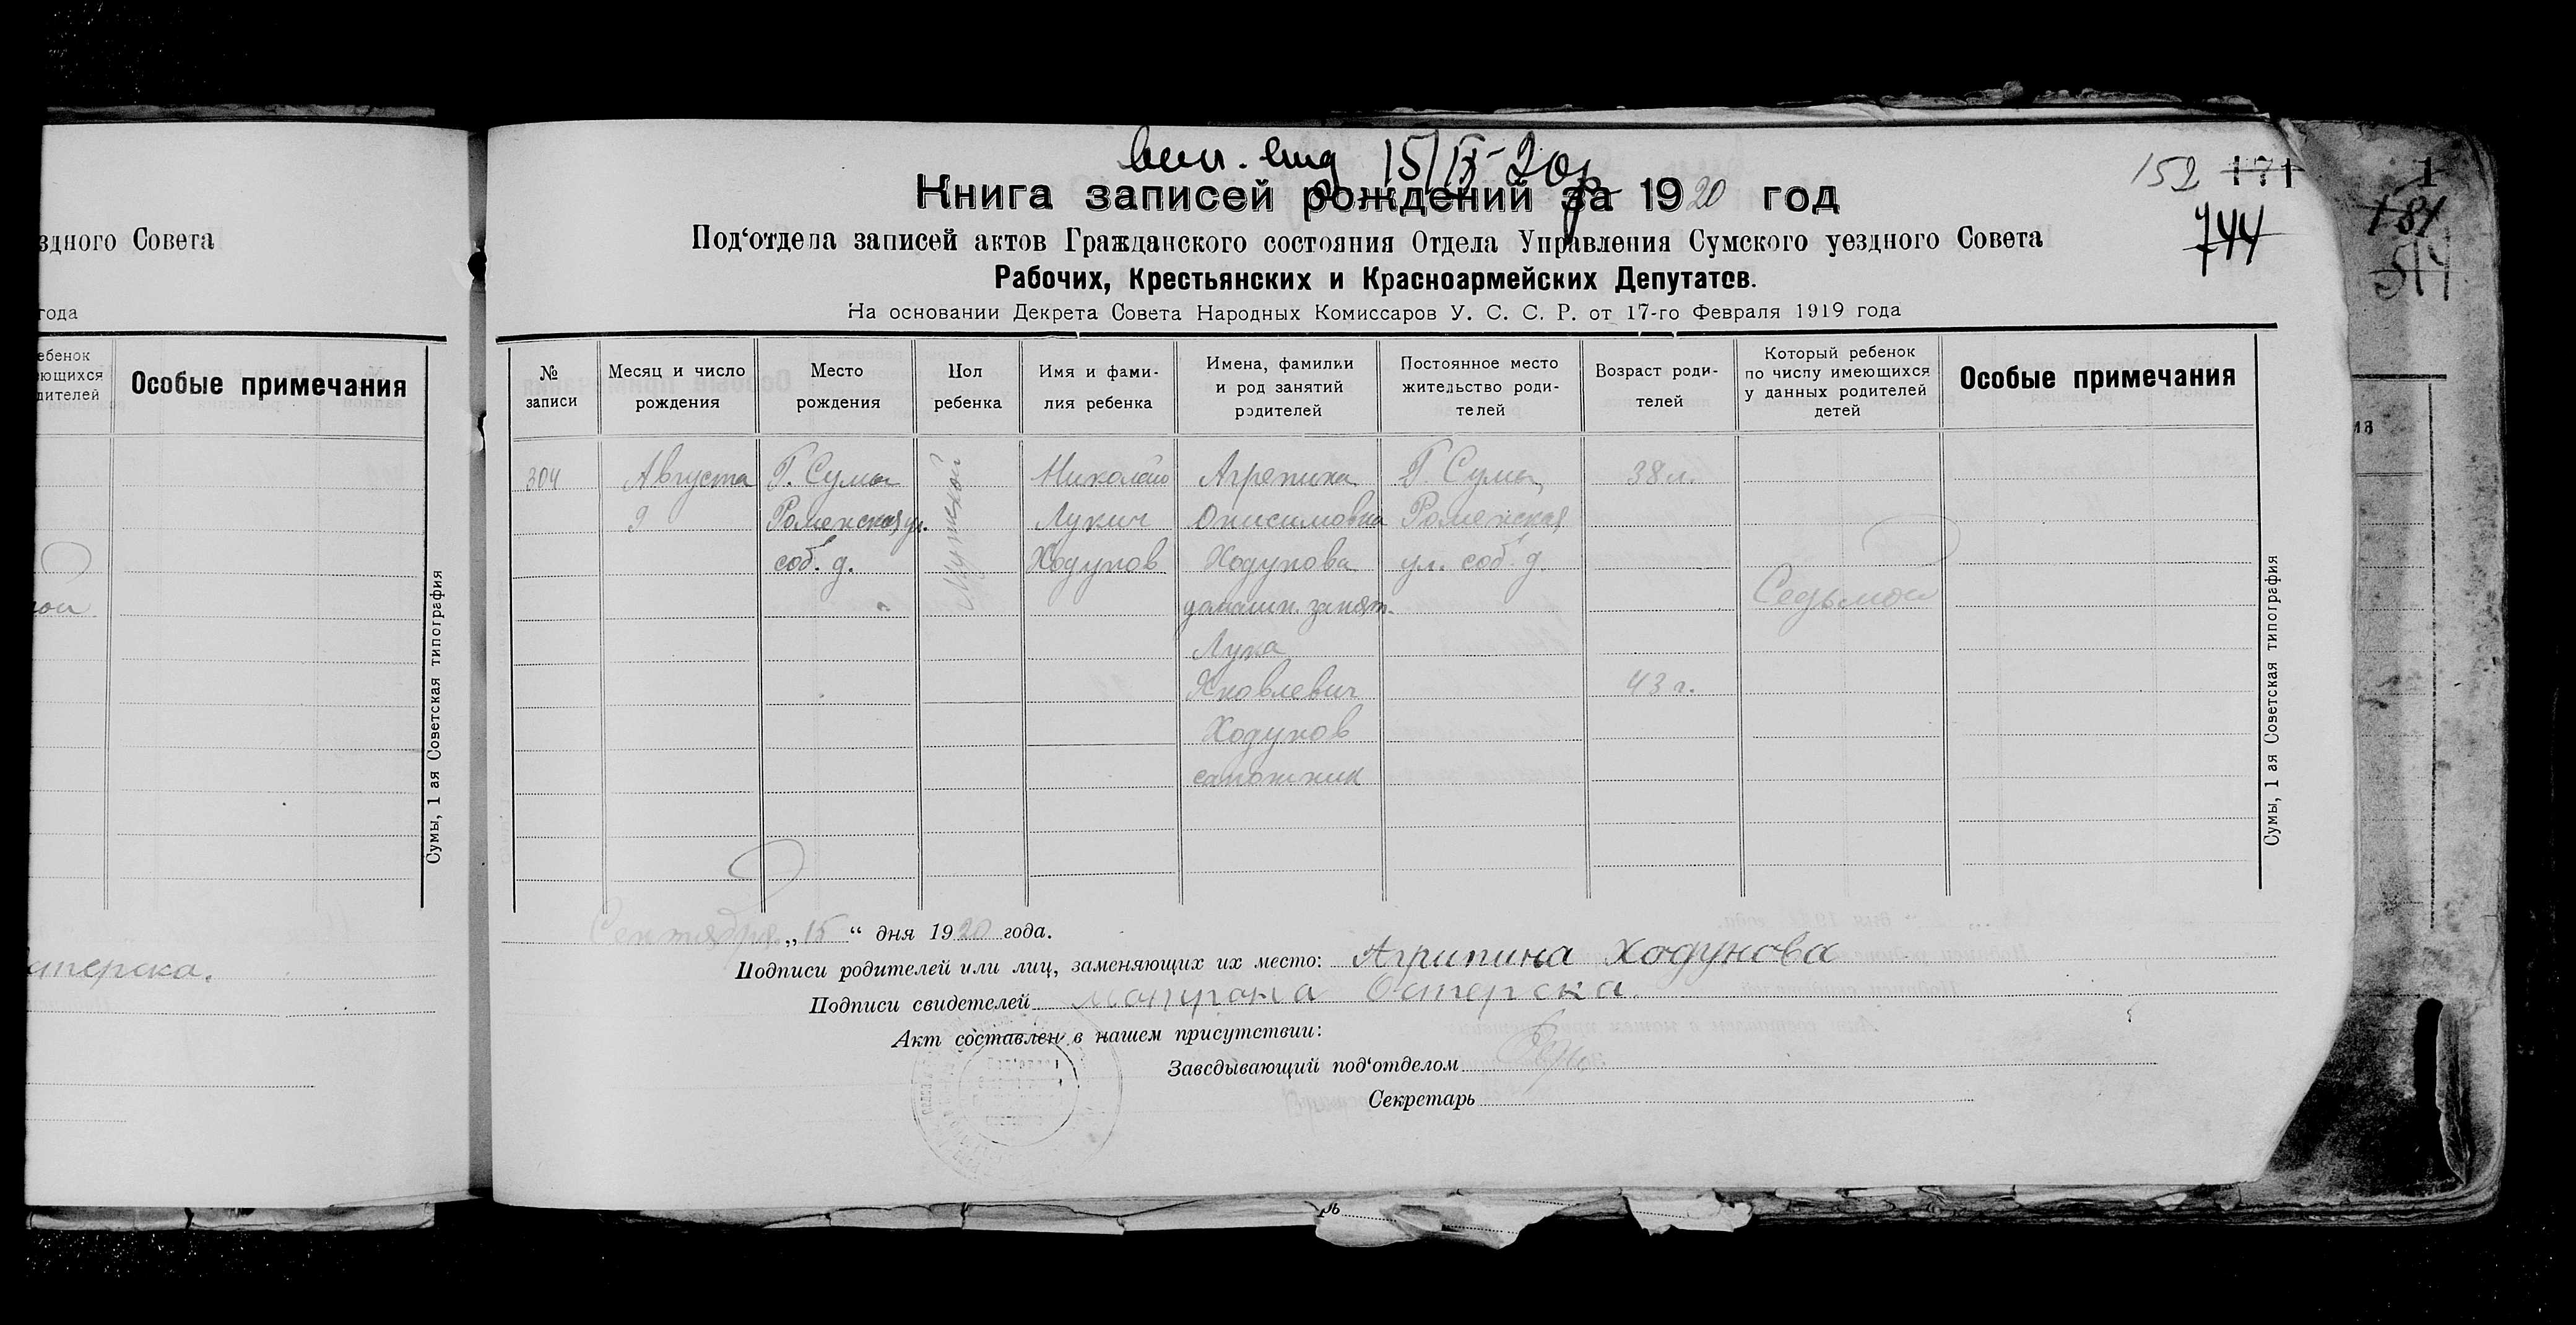 здного Совета
года
ебенок
ющихся
дителей
Особые примечания
ой
Сумы, 1 ая Советская типография
терска.
вып. 15/IX-20 г
152 171
744
Книга записей рождений за 1920 год
Под‘отдела записей актов Гражданского состояния Отдела Управления Сумского уездного Совета
Рабочих, Крестьянских и Красноармейских Депутатов.
На основании Декрета Совета Народных Комиссаров У. С. С. Р. от 17-го Февраля 1919 года
№ записи
Месяц и число рождения
Место рождения
Пол ребенка
Имя и фами-
лия ребенка
Имена, фамилии
и род занятий
родителей
Постоянное место
жительство роди-
телей
Возраст роди-
телей
Который ребенок
по числу имеющихся
у данных родителей
детей
Особые примечания
304
Августа
9
Г. Сумы
Роменская ул.
соб. д.
Мужской
Николай
Лукич
Ходунов
Агрепина
Онисимовна
Ходунова
домашн. занят.
Лука
Яковлевич
Ходунов
сапожник
Г. Сумы,
Роменская
ул. соб. д.
38 л.
43 г.
Седьмой
Сумы, 1 ая Советская типография
Сентября „15“ дня 1920 года.
Подписи родителей или лиц, заменяющих их место: Агрипина Ходунова
Подписи свидетелей Матрона Остерска.
Акт составлен в нашем присутствии:
Заведывающий под‘отделом
Секретарь
1
181
514